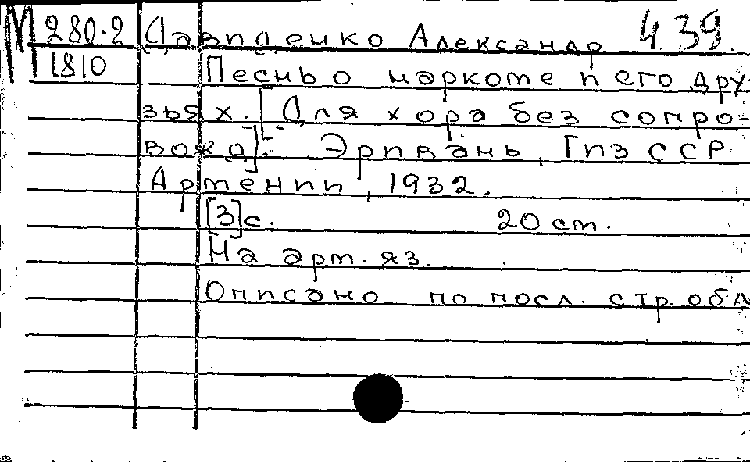 М 280.2 Давиденко Александр 439
1810 Песнь о наркоме и его дру
зьях. [Для хора без сопро=
вожд]. Эривань, Гиз ССР
Армении, 1932.
[3]с. 20 ст.
На арм. яз.
Описано по посл. стр. обл